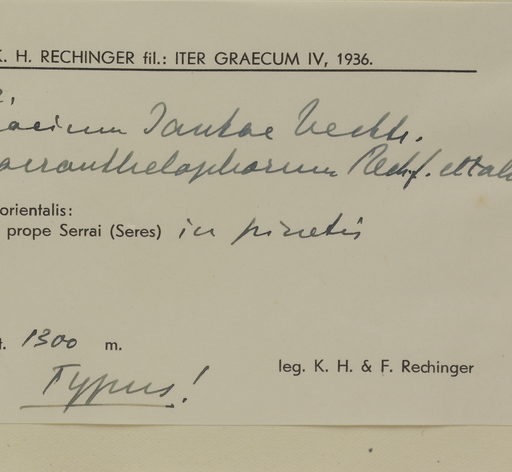 K. H. RECHINGER fil.: ITER GRAECUM IV, 1936.
acium Jankae Uechtr.
acranthelophorum Rech. f. et
orientalis:
prope Serrai (Seres) in pinetis
t. 1300 m.
Typus!
leg. K. H. & F. Rechinger